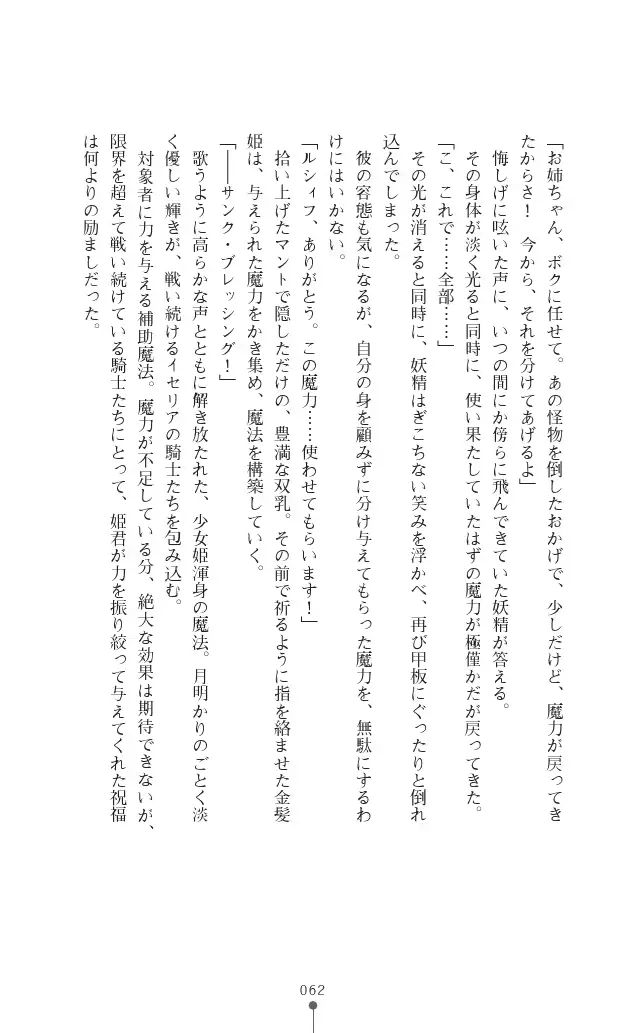 「お姉ちゃん、ボクに任せて。あの怪物を倒したおかげで、少しだけど、魔力が戻ってき
たからさ！　今から、それを分けてあげるよ」
悔しげに呟いた声に、いつの間にか傍らに飛んできていた妖精が答える。
その身体が淡く光ると同時に、使い果たしていたはずの魔力が極僅かだが戻ってきた。
「こ、これで……全部……」
その光が消えると同時に、妖精はぎこちない笑みを浮かべ、再び甲板にぐったりと倒れ
込んでしまった。
彼の容態も気になるが、自分の身を顧みずに分け与えてもらった魔力を、無駄にするわ
けにはいかない。
「ルシィフ、ありがとう。この魔力……使わせてもらいます！」
拾い上げたマントで隠しただけの、豊満な双乳。その前で祈るように指を絡ませた金髪
姫は、与えられた魔力をかき集め、魔法を構築していく。
「――サンク・ブレッシング！」
歌うように高らかな声とともに解き放たれた、少女姫渾身の魔法。月明かりのごとく淡
く優しい輝きが、戦い続けるイセリアの騎士たちを包み込む。
対象者に力を与える補助魔法。魔力が不足している分、絶大な効果は期待できないが、
限界を超えて戦い続けている騎士たちにとって、姫君が力を振り絞って与えてくれた祝福
は何よりの励ましだった。
062